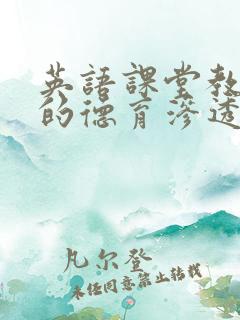 英語課堂教
的德育滲透
凡尔登
未经同意禁止转载